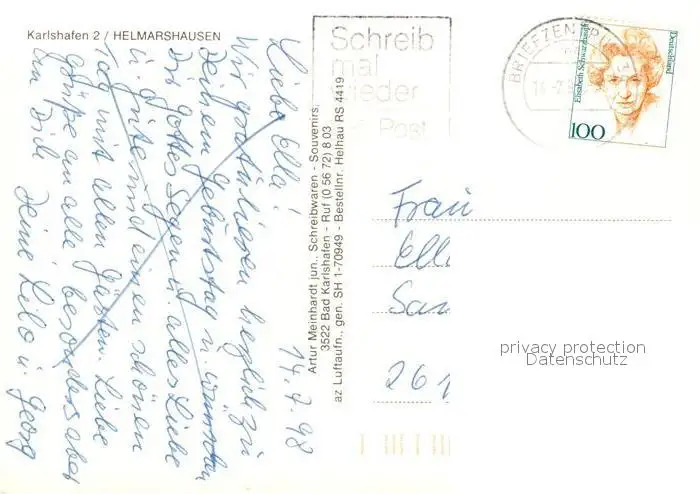 Karlshafen 2 / HELMARSHAUSEN
14.7.98
Liebe Ella!
Wir gratulieren herzlich zu
Deinem Geburtstag u. wünschen
Dir Gottes Segen u. alles Liebe
u. Gute und einen schönen
Tag mit allen Gästen. Liebe
Grüße an alle besonders aber
an Dich Deine Lilo u. Georg
Artur Meinhardt jun., Schreibwaren - Souvenirs,
3522 Bad Karlshafen - Ruf (0 56 72) 8 03
az Luftaufn., gen. SH 1-70949 - Bestellnr. Helhau RS 4419
Schreib
mal
wieder
Post
BRIEFZEN
Elisabeth Schwarzhaupt
Deutschland
100
Frau
Ell
San
261
privacy protection
Datenschutz